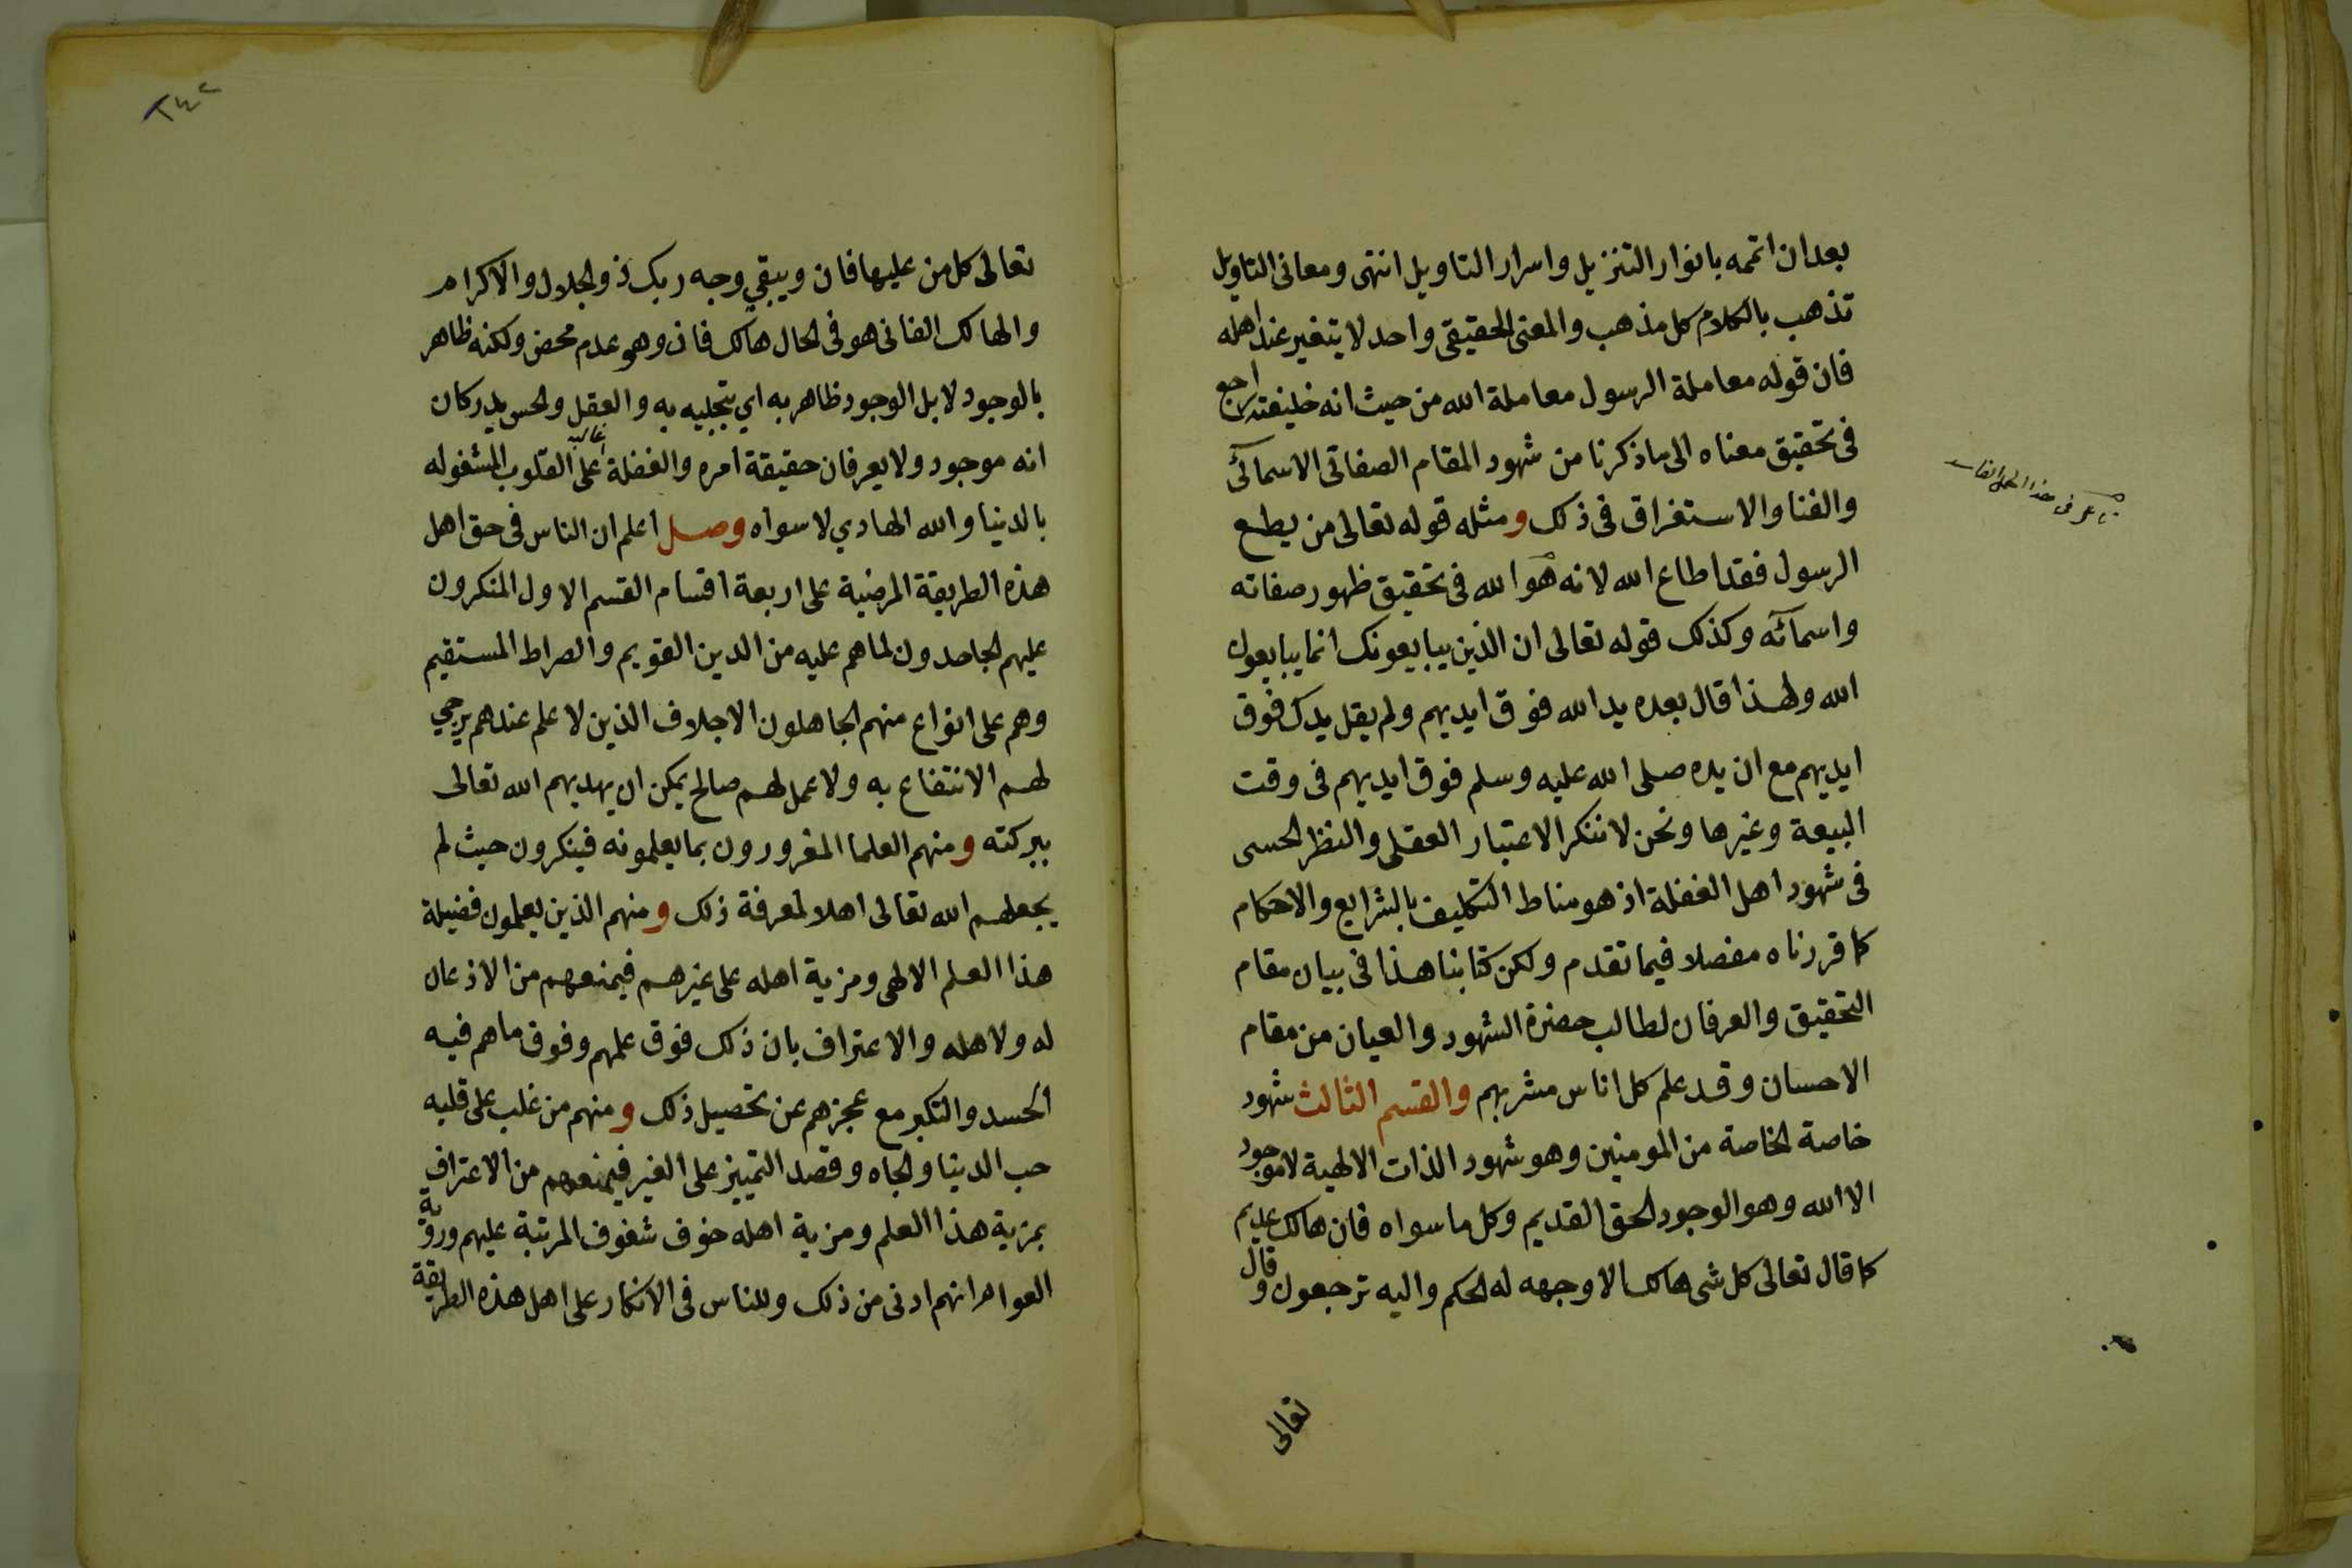 بعد ان اتمه بانوار التنزيل واسرار التاويل انتهى ومعانى التاويل
تذهب بالكلام كل مذهب والمعنى الحقيقى واحد لا يتغير عند اهله
فان قوله معاملة الرسول معاملة الله من حيث انه خليفته راجع
فى تحقيق معناه الى ما ذكرنا من شهود المقام الصفاتى الاسمائى
والفنا والاستغراق فى ذلك ومثله قوله تعالى من يطع
الرسول فقد اطاع الله لانه هو الله فى تحقيق ظهور صفاته
واسمائه وكذلك قوله تعالى ان الذين يبايعونك انما يبايعون
الله ولهذا قال بعده يد الله فوق ايديهم ولم يقل يدك فوق
ايديهم مع ان يده صلى الله عليه وسلم فوق ايديهم فى وقت
البيعة وغيرها ونحن لا ننكر الاعتبار العقلى والنظر الحسى
فى شهود اهل الغفلة اذ هو مناط التكليف بالشرايع والاحكام
كما قررناه مفصلا فيما تقدم ولكن كتابنا هذا فى بيان مقام
التحقيق والعرفان لطالب حضرة الشهود والعيان من مقام
الاحسان وقد علم كل اناس مشربهم والقسم الثالث شهود
خاصة الخاصة من المومنين وهو شهود الذات الالهية لا موجود
الا الله وهو الوجود الحق القديم وكل ما سواه فان هالك عديم
كما قال تعالى كل شى هالك الا وجهه له الحكم واليه ترجعون وقال
تعالى
٢٤٢
تعالى كل من عليها فان ويبقي وجه ربك ذو الجلال والاكرام
والهالك الفانى هو فى الحال هالك فان وهو عدم محض ولكنه ظاهر
بالوجود لا بل الوجود ظاهر به اي بتجليه به والعقل والحس يدركان
انه موجود ولا يعرفان حقيقة امره والغفلة غالبه على القلوب المشغوله
بالدنيا والله الهادي لا سواه وصل اعلم ان الناس فى حق اهل
هذه الطريقة المرضية على اربعة اقسام القسم الاول المنكرون
عليهم الجاحدون لما هم عليه من الدين القويم والصراط المستقيم
وهم على انواع منهم الجاهلون الاجلاف الذين لا علم عندهم يرجي
لهم الانتفاع به ولا عمل لهم صالح يمكن ان يهديهم الله تعالى
ببركته ومنهم العلما المغرورون بما يعلمونه فينكرون حيث لم
يجعلهم الله تعالى اهلا لمعرفة ذلك ومنهم الذين يعلمون فضيلة
هذا العلم الالهى ومزية اهله على غيرهم فيمنعهم من الاذعان
له ولاهله والاعتراف بان ذلك فوق علمهم وفوق ما هم فيه
الحسد والتكبر مع عجزهم عن تحصيل ذلك ومنهم من غلب على قلبه
حب الدينا والجاه وقصد التمييز على الغير فيمنعهم من الاعتراف
بمزية هذا العلم ومزية اهله خوف شفوف المرتبة عليهم ورؤية
العوام انهم ادنى من ذلك وللناس فى الانكار على اهل هذه الطريقة